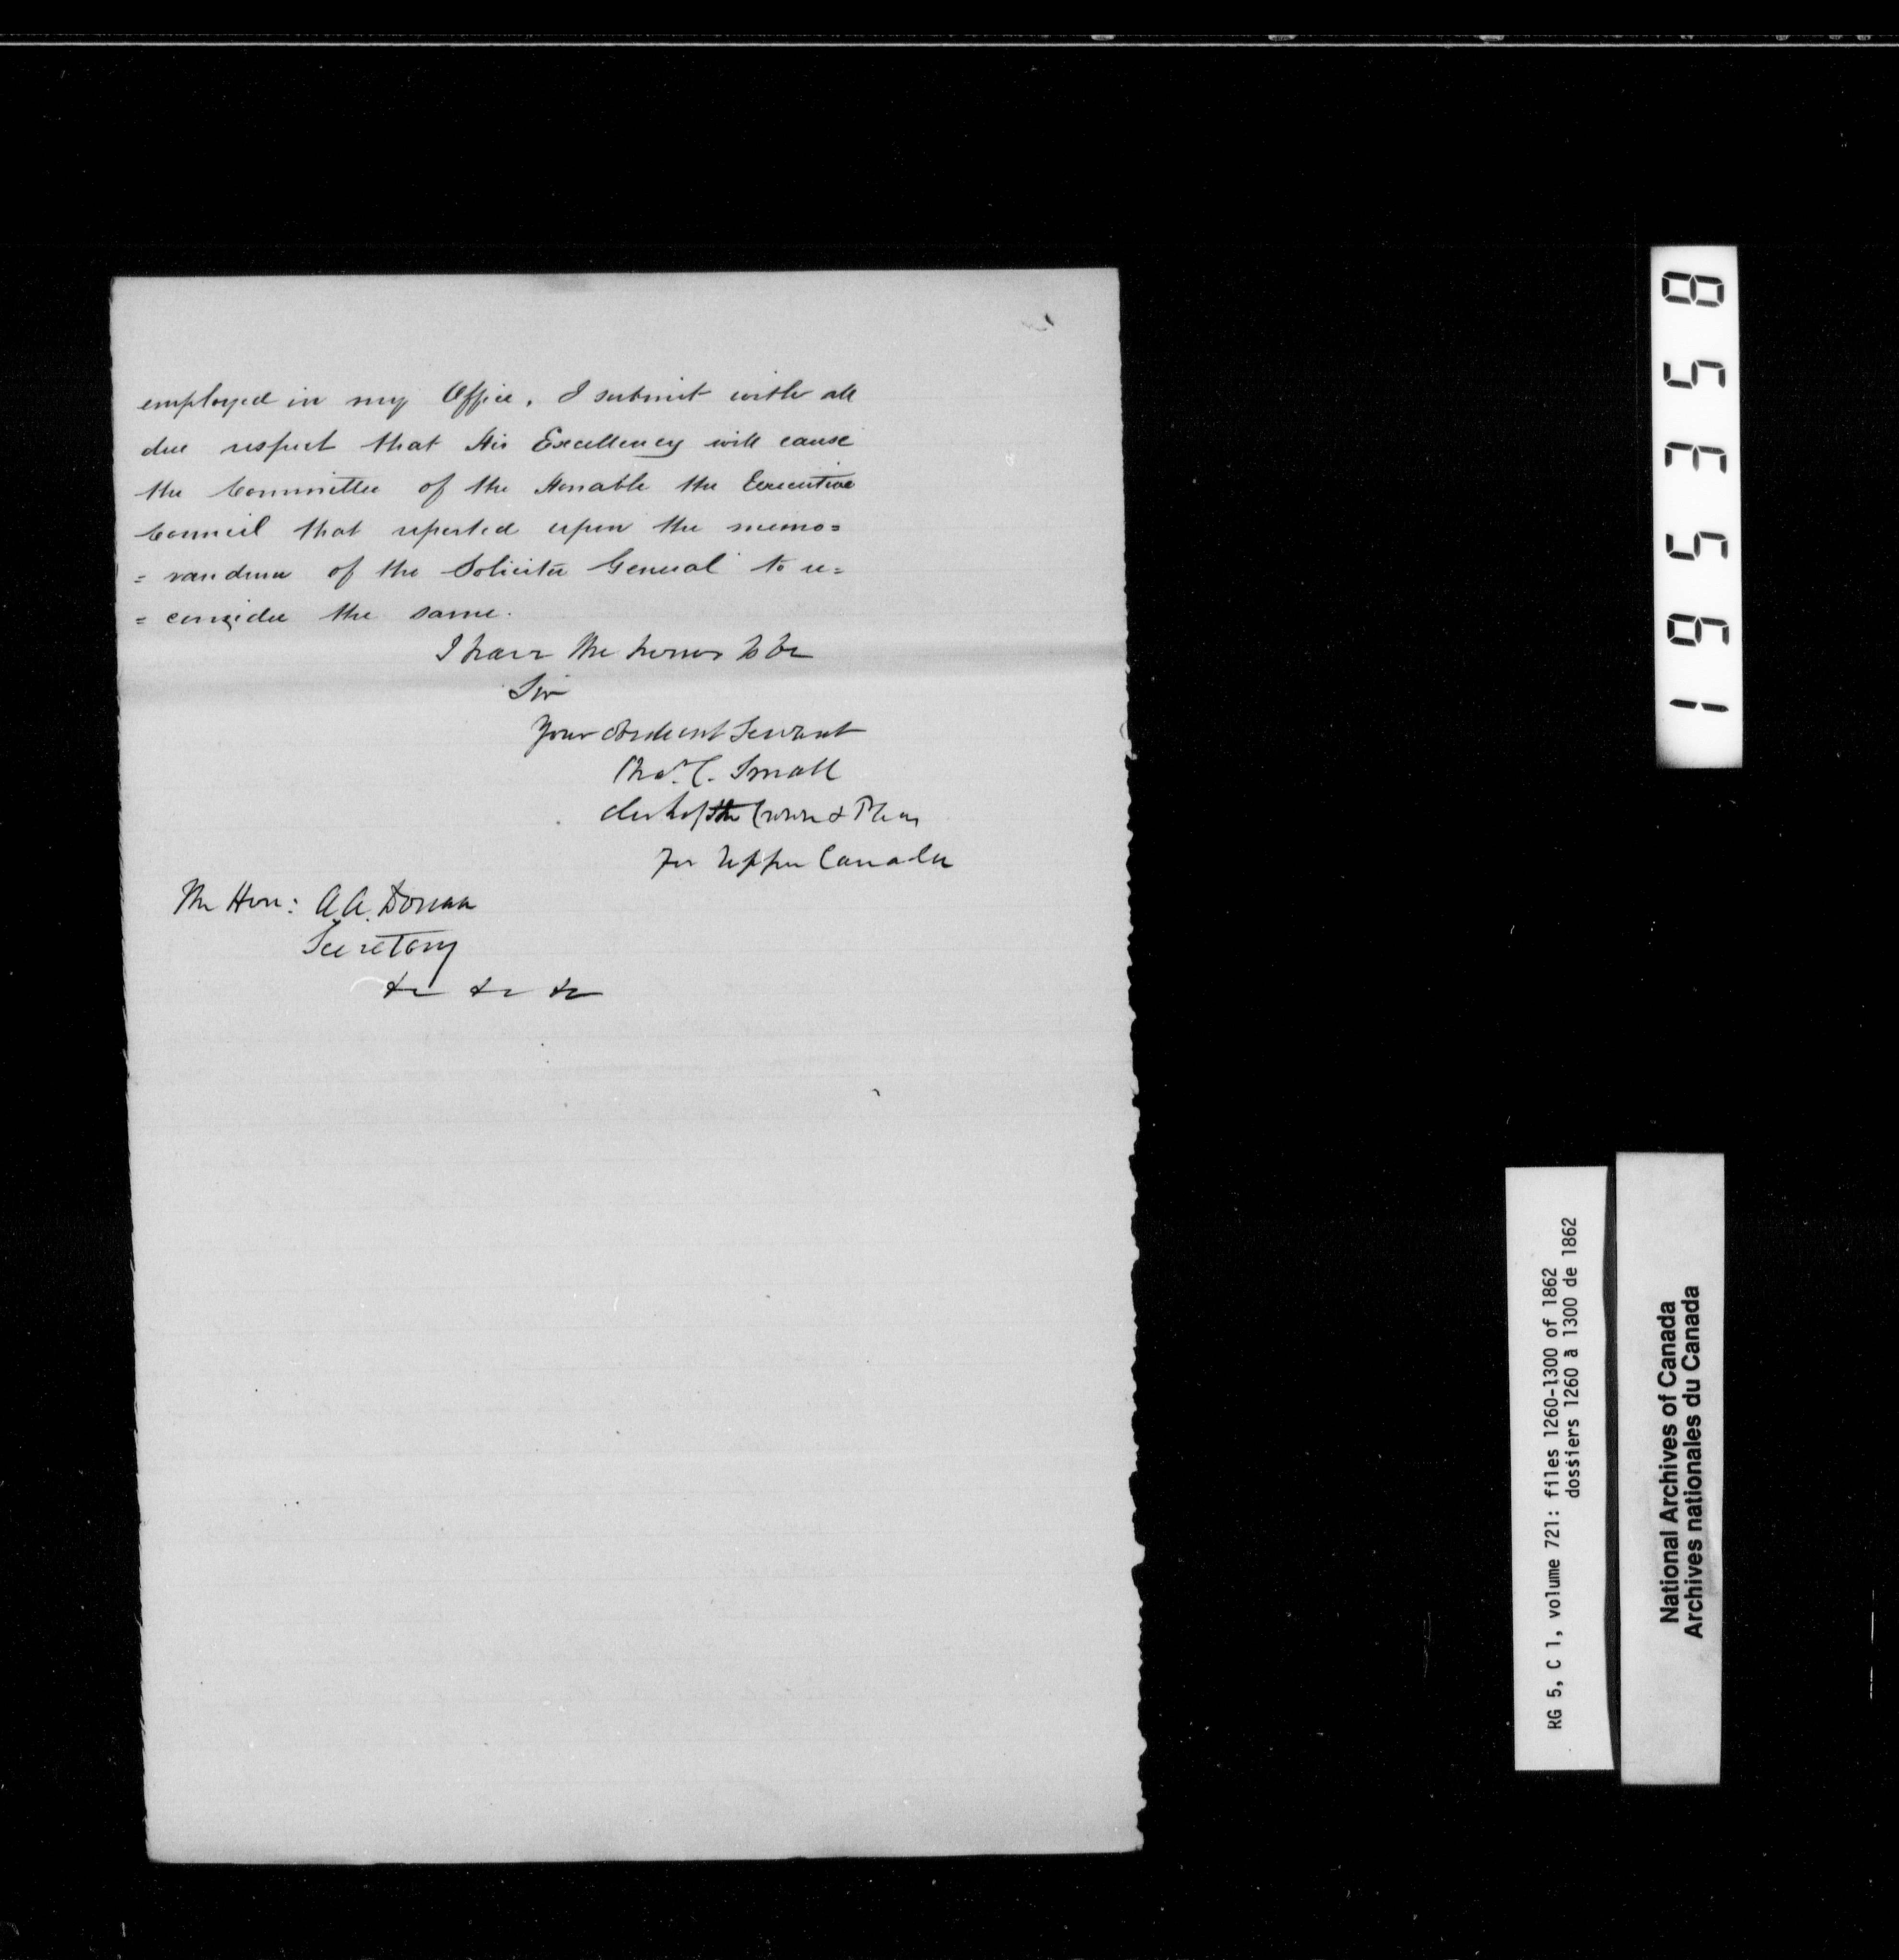 employed in my Office, I submit with all
due respect that His Excellency will cause
the Committee of the Honable the Executive
Council that reported upon the memo=
= randum of the Solicitor General to re=
= consider the same.
I have the honor to be
Sir
Your obedient Servant
Chas. C. Small
Clerk of the Crown & Pleas
for Upper Canada
The Hon: A.A. Dorion
Secretary
&c &c &c
195358
RG 5, C 1, volume 721: files 1260-1300 of 1862
dossiers 1260 à 1300 de 1862
National Archives of Canada
Archives nationales du Canada